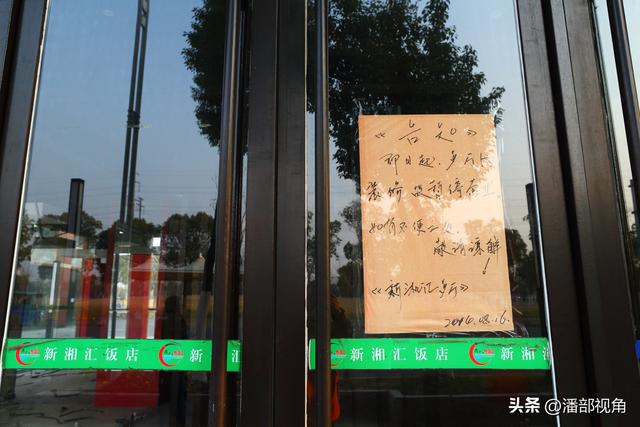 《告知》
即日起,多厅因
装修 暂停营业
如有不便之处
敬请谅解!
《新湘汇多厅》
2016.08.16.
新湘汇饭店 新湘
新湘汇饭店 新湘汇
头条 @潘部视角